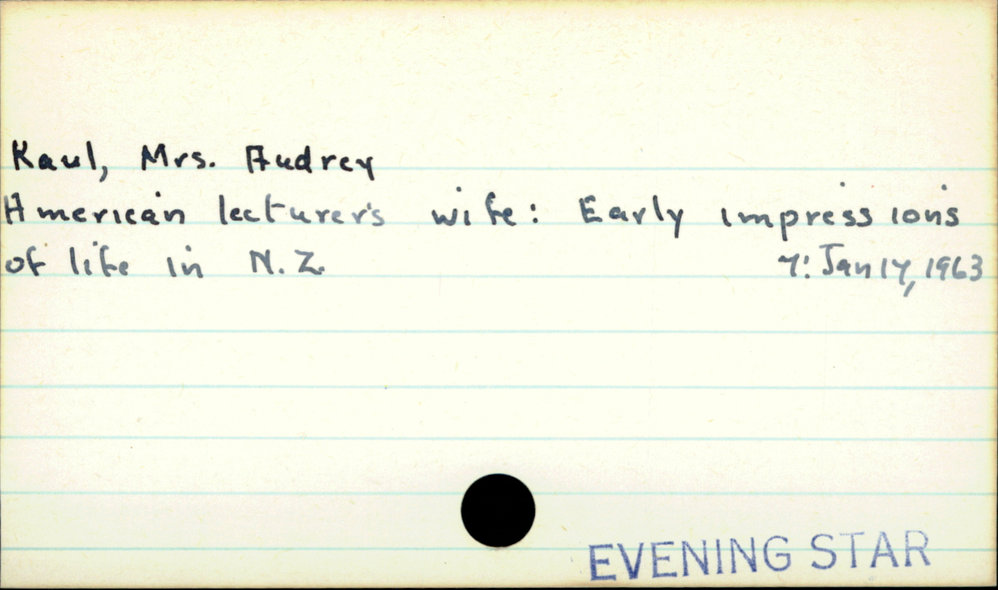 Kaul, Mrs. Audrey
American lecturer's wife: Early impressions
of life in N.Z. 7: Jan 14, 1963
EVENING STAR